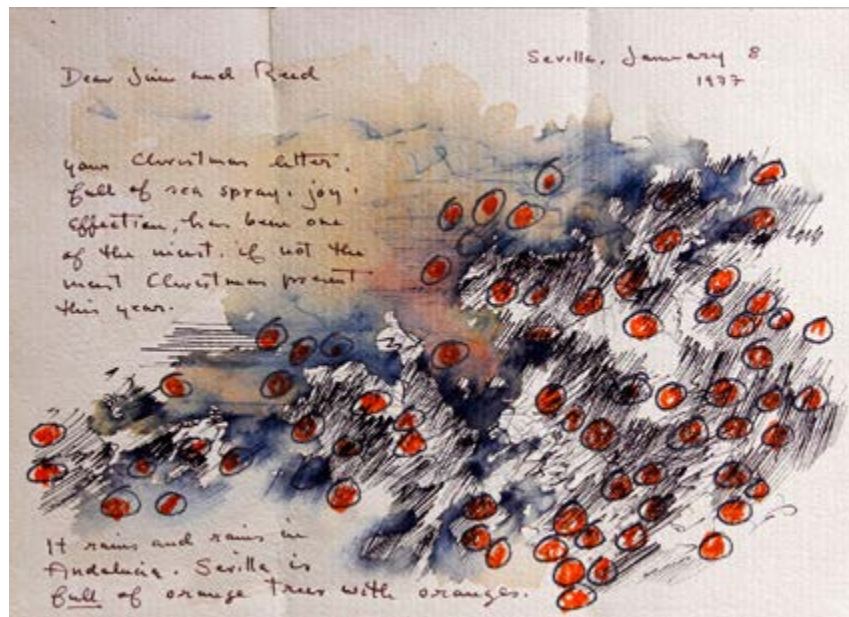 Sevilla, January 8
1977
Dear Jim and Reid
your Christmas letter,
full of sea spray, joy,
affection, has been one
of the nicest, if not the
nicest Christmas present
this year.
It rains and rains in
Andalucia. Sevilla is
full of orange trees with oranges.